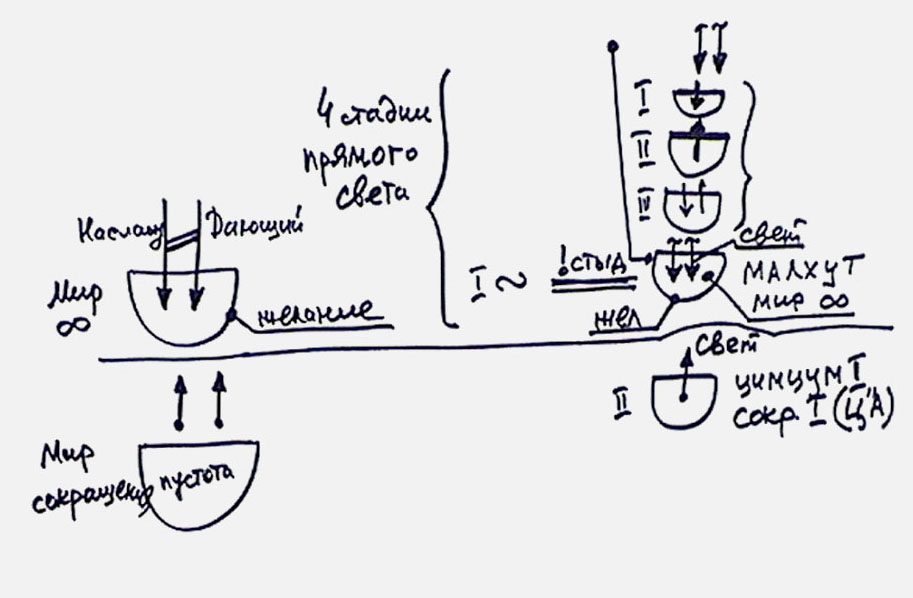 4 стадии
прямого
света
Наслажд
Дающий
Мир
∞
желание
I
II
IV
I ~
! стыд
свет
МАЛХУТ
мир ∞
жел
свет
II
цимцум I
сокр. I (Ц"А)
Мир
сокращения
пустота